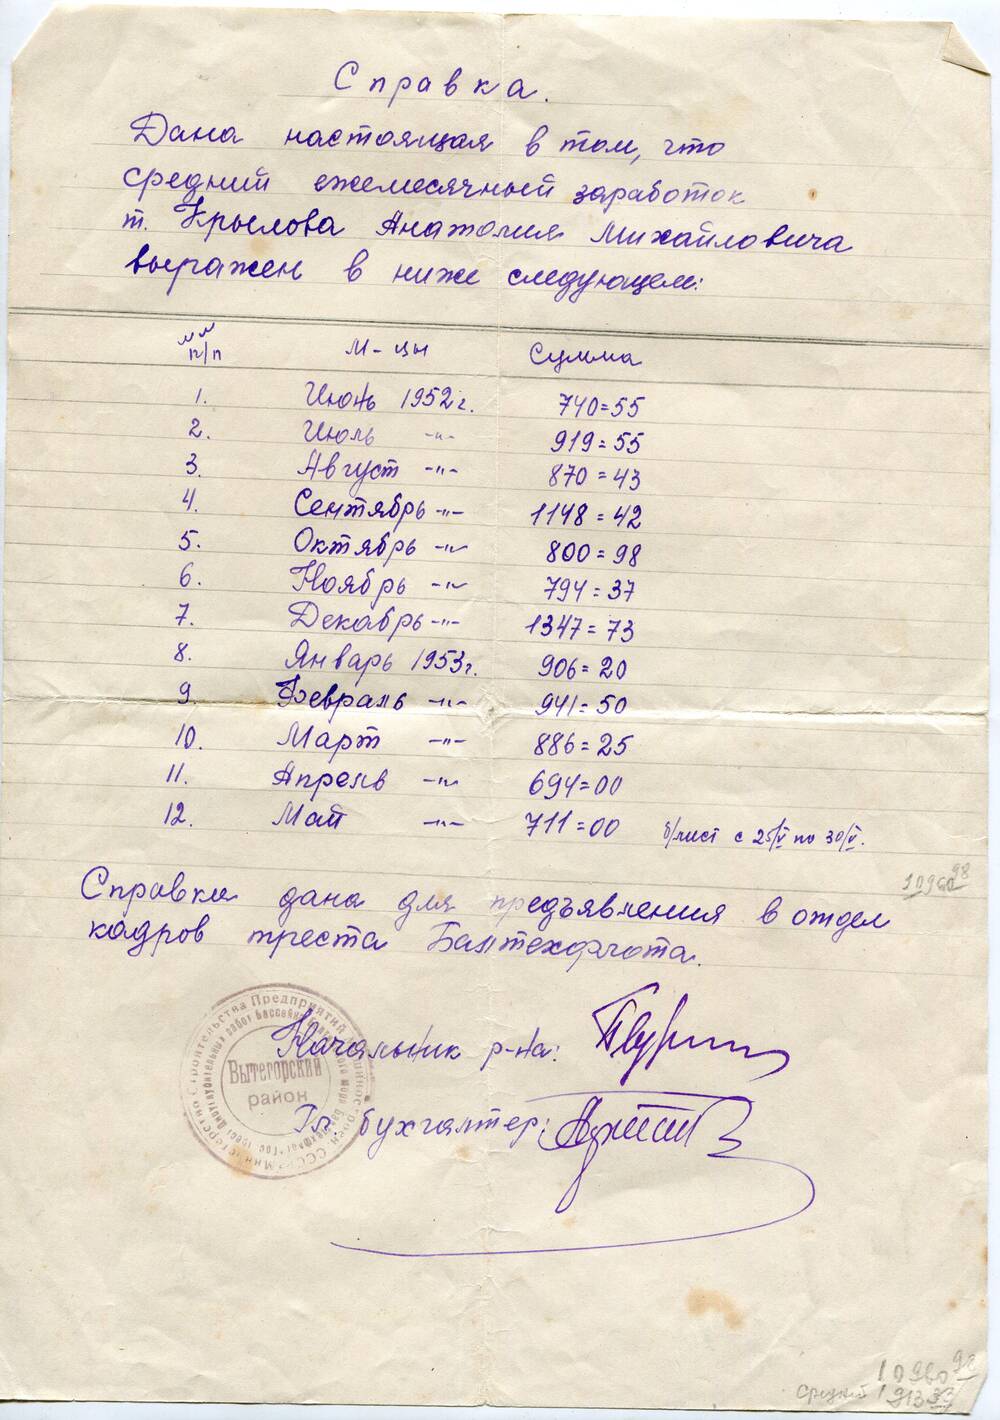 Справка.
Дана настоящая в том, что
средний ежемесячный заработок
т. Крылова Анатолия Михайловича
выражен в ниже следующем:
№№ п/п М-цы Сумма
1. Июнь 1952 г. 740=55
2. Июль -"- 919=55
3. Август -"- 870=43
4. Сентябрь -"- 1148=42
5. Октябрь -"- 800=98
6. Ноябрь -"- 794=37
7. Декабрь -"- 1347=73
8. Январь 1953 г. 906=20
9. Февраль -"- 941=50
10. Март -"- 886=25
11. Апрель -"- 694=00
12. Май -"- 711=00 б/лист с 25/V по 30/V.
10960 98
Справка дана для предъявления в отдел
кадров треста Балттехфлота.
Начальник р-на:
Гл. бухгалтер:
Вытегорский
район
10960 98
средний 913 33